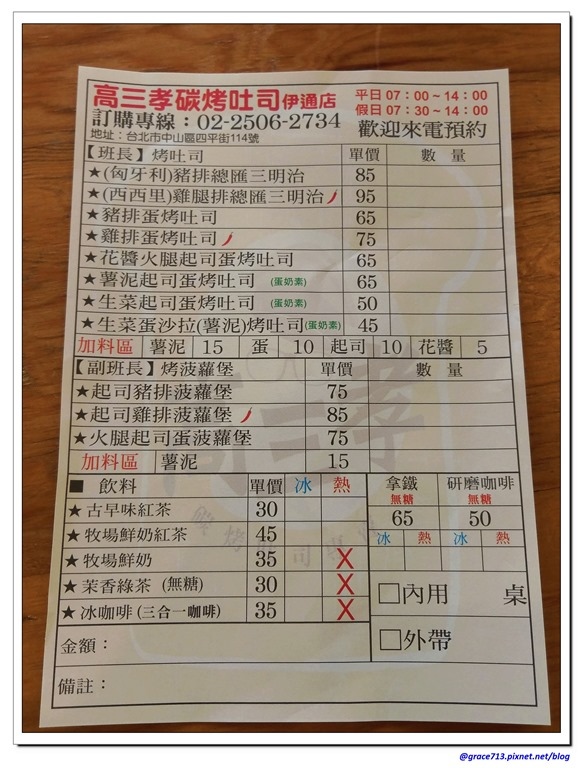 高三孝碳烤吐司伊通店
平日07：00~14：00
假日07：30~14：00
訂購專線：02-2506-2734
歡迎來電預約
地址：台北市中山區四平街114號
【班長】烤吐司 單價 數量
★(匈牙利)豬排總匯三明治 85
★(西西里)雞腿排總匯三明治 95
★豬排蛋烤吐司 65
★雞排蛋烤吐司 75
★花醬火腿起司蛋烤吐司 65
★薯泥起司蛋烤吐司 (蛋奶素) 65
★生菜起司蛋烤吐司 (蛋奶素) 50
★生菜蛋沙拉(薯泥)烤吐司(蛋奶素) 45
加料區 薯泥 15 蛋 10 起司 10 花醬 5
【副班長】烤菠蘿堡 單價 數量
★起司豬排菠蘿堡 75
★起司雞排菠蘿堡 85
★火腿起司蛋菠蘿堡 75
加料區 薯泥 15
■ 飲料 單價 冰 熱
★古早味紅茶 30
★牧場鮮奶紅茶 45
★牧場鮮奶 35 X
★茉香綠茶 (無糖) 30 X
★冰咖啡(三合一咖啡) 35 X
拿鐵 研磨咖啡
無糖 無糖
65 50
冰 熱 冰 熱
□內用 桌
□外帶
金額：
備註：
高三孝
@grace713.pixnet.net/blog